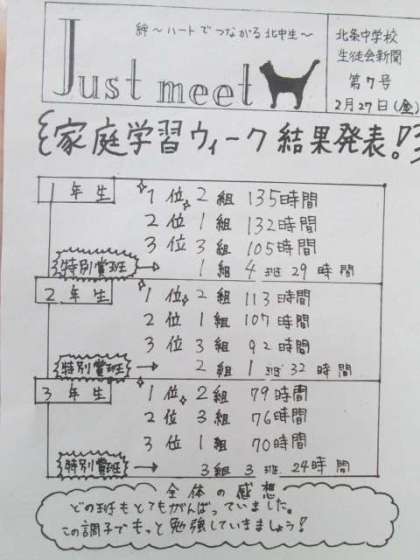 絆〜ハートでつながる北中生〜
Just meet
北条中学校
生徒会新聞
第7号
2月27日(金)
家庭学習ウィーク結果発表!
1年生
1位 2組 135時間
2位 1組 132時間
3位 3組 105時間
特別賞班→ 1組 4班 29時間
2年生
1位 2組 113時間
2位 1組 107時間
3位 3組 92時間
特別賞班→ 2組 1班 32時間
3年生
1位 2組 79時間
2位 3組 76時間
3位 1組 70時間
特別賞班→ 3組 3班 24時間
全体の感想
どの班もとてもがんばっていました。
この調子でもっと勉強していきましょう!